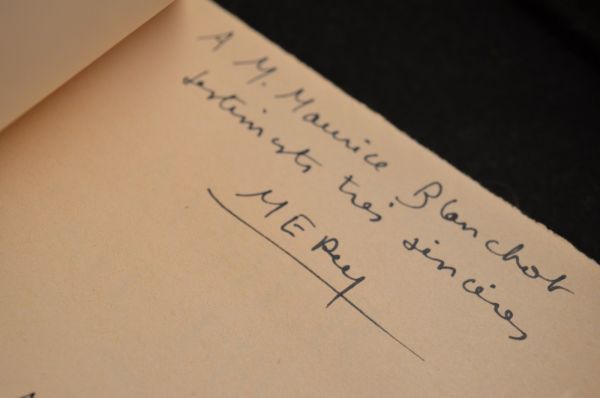 A M. Maurice Blanchot
sentiments très sincères